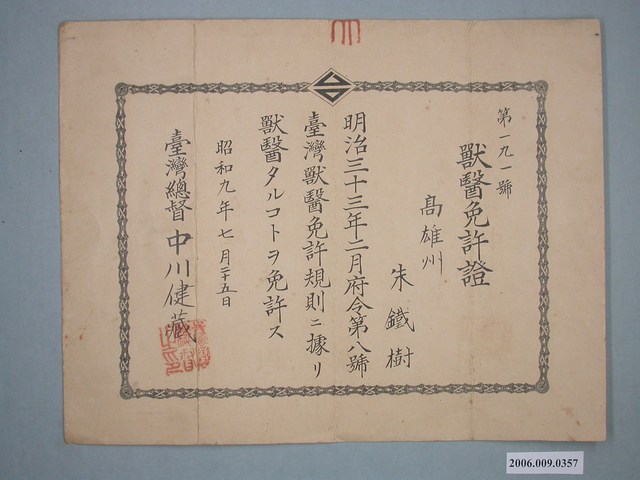 第一九一號
獸醫免許證
高雄州
朱鐵樹
明治三十三年二月府令第八號
臺灣獸醫免許規則ニ據リ
獸醫タルコトヲ免許ス
昭和九年七月二十五日
臺灣總督中川健藏
2006.009.0357